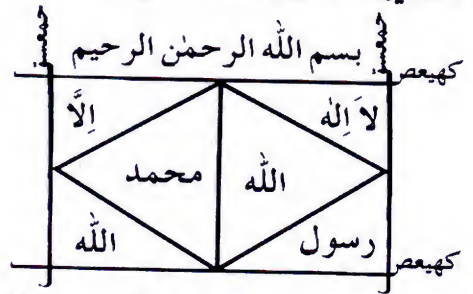 بسم الله الرحمٰن الرحيم
كهيعص
لاَ اِلٰه
اِلَّا
الله
محمد
رسول
الله
كهيعص